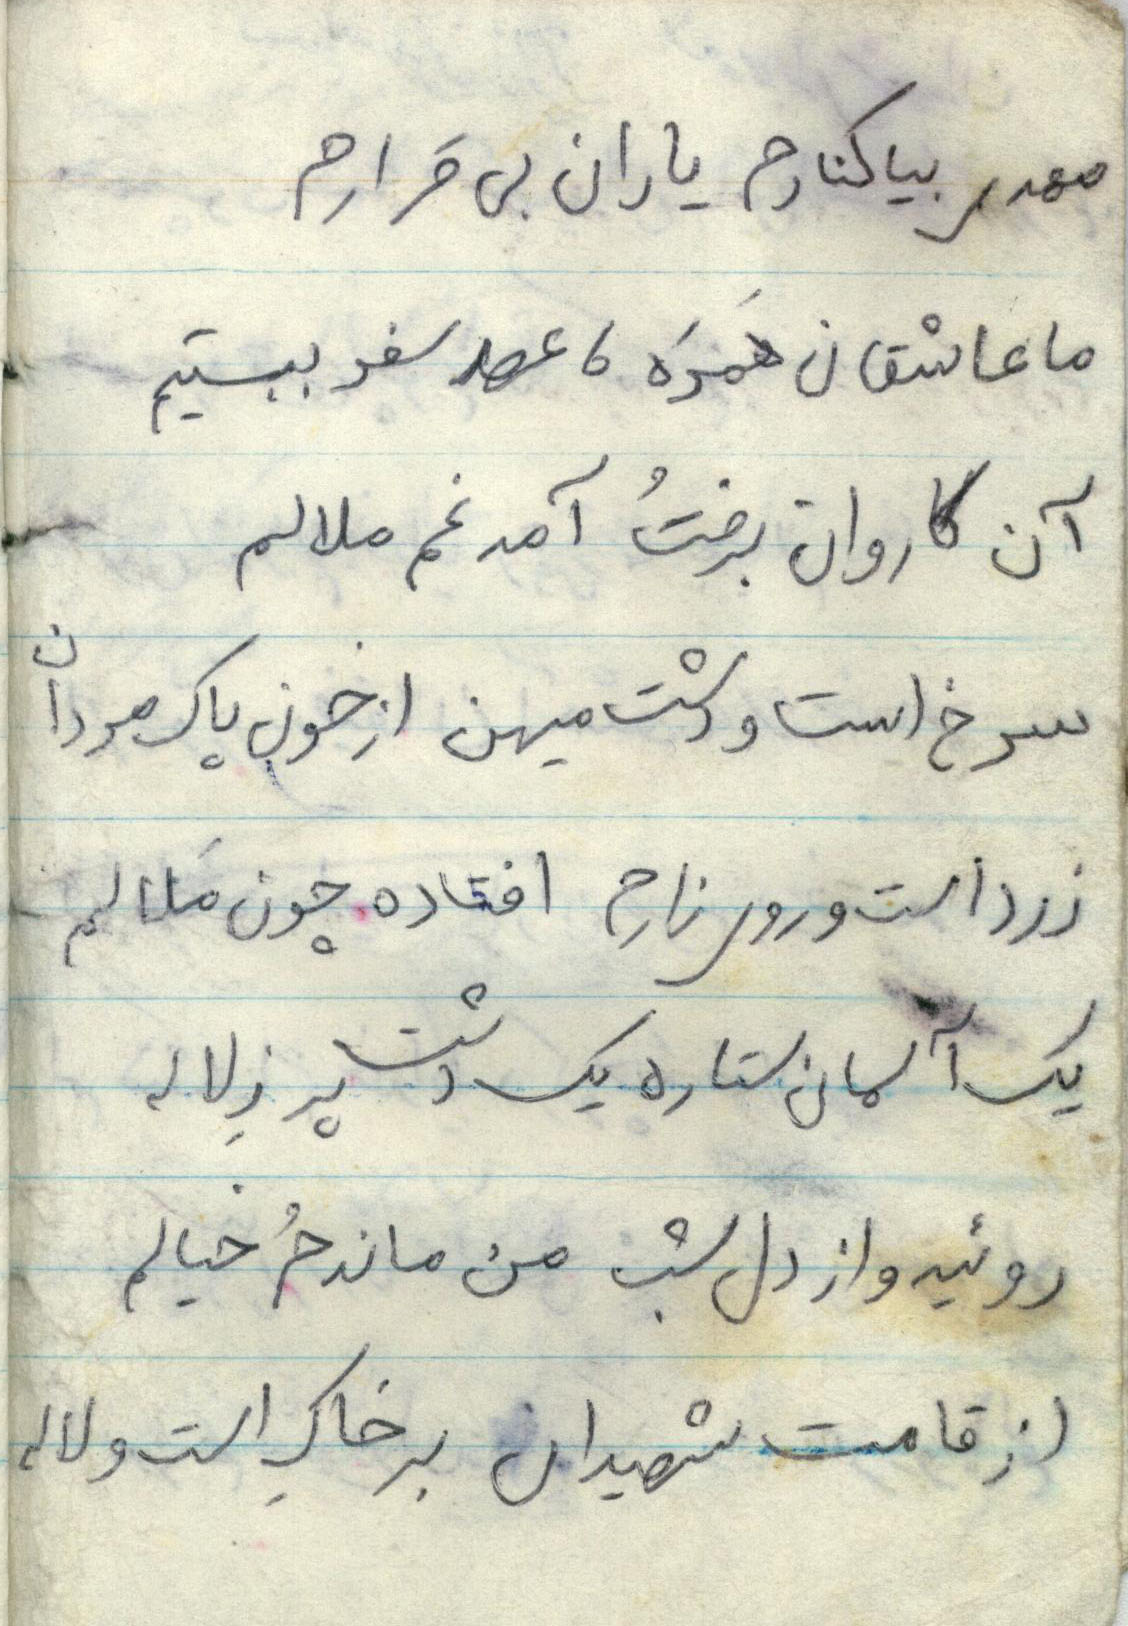 مهدی بیا کنارم یاران بی قرارم
ما عاشقان هَمرَه عهد سفر ببستیم
آن کاروان برفتُ آمد غم ملالم
سرخ است و دشت میهن از خونِ پاک مردان
زرد است و روی زارم افتاده چون مَلالم
یک آسمان ستاره یک دشت پر زِلاله
روئید و از دل شب من ماندمُ خیالم
از قامت شهیدان بر خاکِ است و لاله